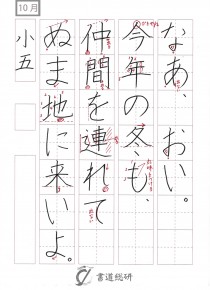 10月
なあ、おい。
今年の冬も、
仲間を連れて
ぬま地に来いよ。
小五
書道総研